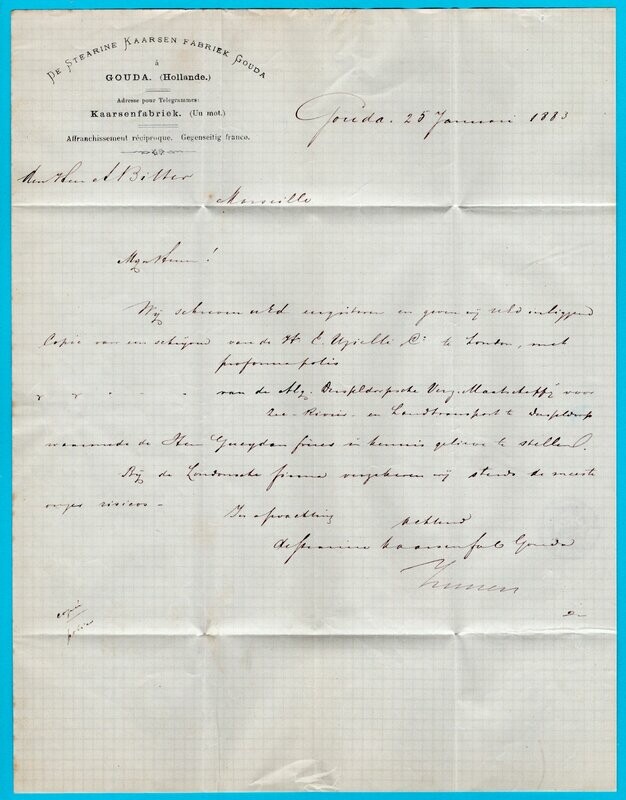 De Stearine Kaarsen Fabriek Gouda
à
GOUDA. (Hollande.)
Adresse pour Telegrammes:
Kaarsenfabriek. (Un mot.)
Affranchissement réciproque. Gegenseitig franco.
Gouda. 25 Januari 1883
den Heer A Bitter
Marseille
Mijn Heer!
Wij schreven UEd eergisteren en geven wij UEd inliggend
Copie van een schrijven van de H E. Uzielli Co te London, met
proforma polis
" " " " van de Alg. Dusseldorpsche Verz. Maatschappij voor
Zee- Rivier- en Landtransport te Dusseldorp
waarmede de Heer Gueydan frères in kennis gelieve te stellen.
Bij de Londensche firma verzekeren wij steeds de meeste
onzer risicos -
In afwachting
Achtend
de Stearine Kaarsenfab Gouda